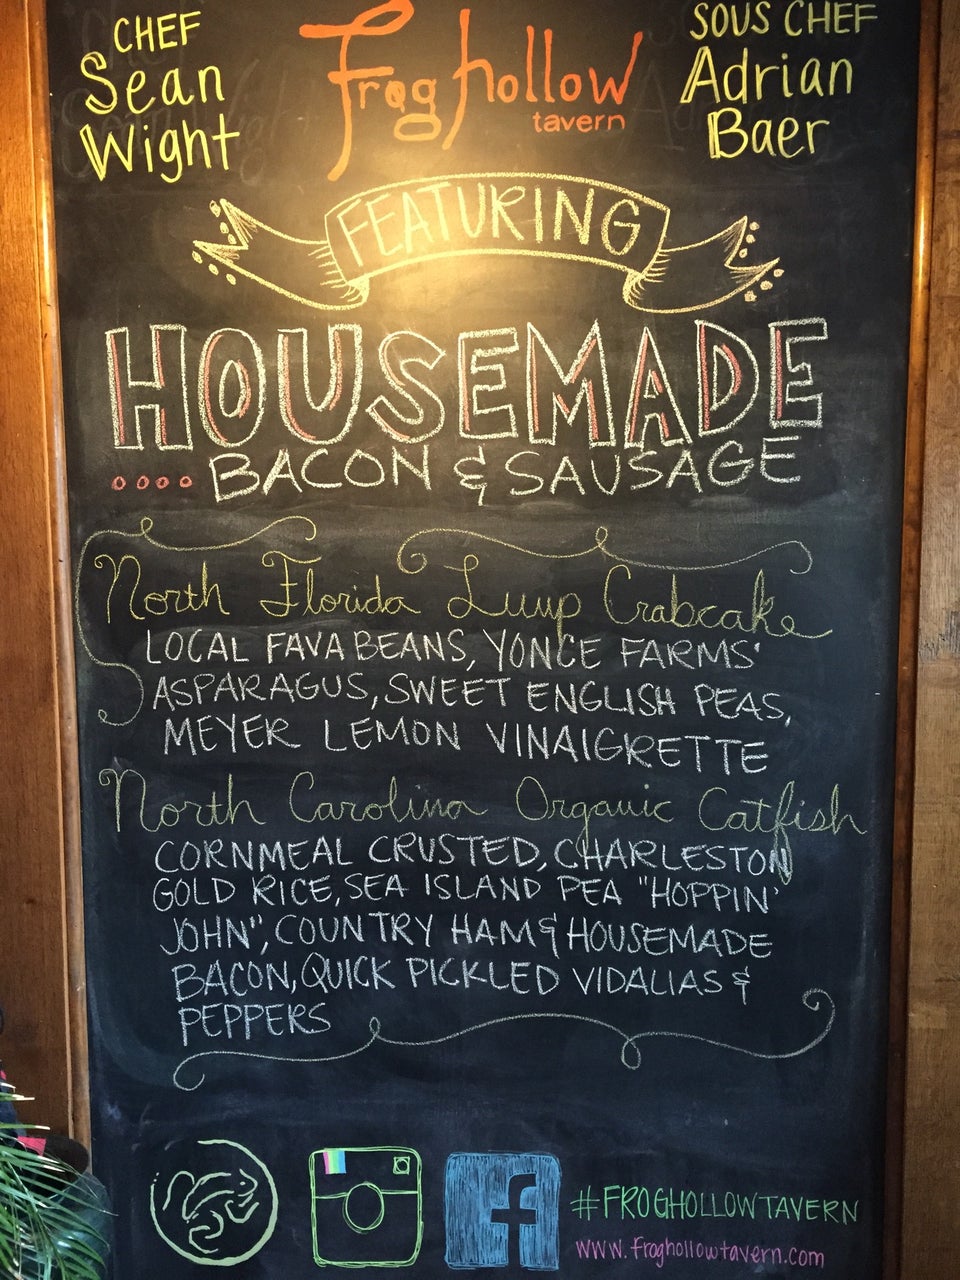 CHEF
Sean
Wight
Frog hollow
tavern
SOUS CHEF
Adrian
Baer
FEATURING
HOUSEMADE
BACON & SAUSAGE
North Florida Lump Crabcake
LOCAL FAVA BEANS, YONCE FARMS'
ASPARAGUS, SWEET ENGLISH PEAS,
MEYER LEMON VINAIGRETTE
North Carolina Organic Catfish
CORNMEAL CRUSTED, CHARLESTON
GOLD RICE, SEA ISLAND PEA "HOPPIN'
JOHN", COUNTRY HAM & HOUSEMADE
BACON, QUICK PICKLED VIDALIAS &
PEPPERS
f
#FROGHOLLOWTAVERN
www.froghollowtavern.com